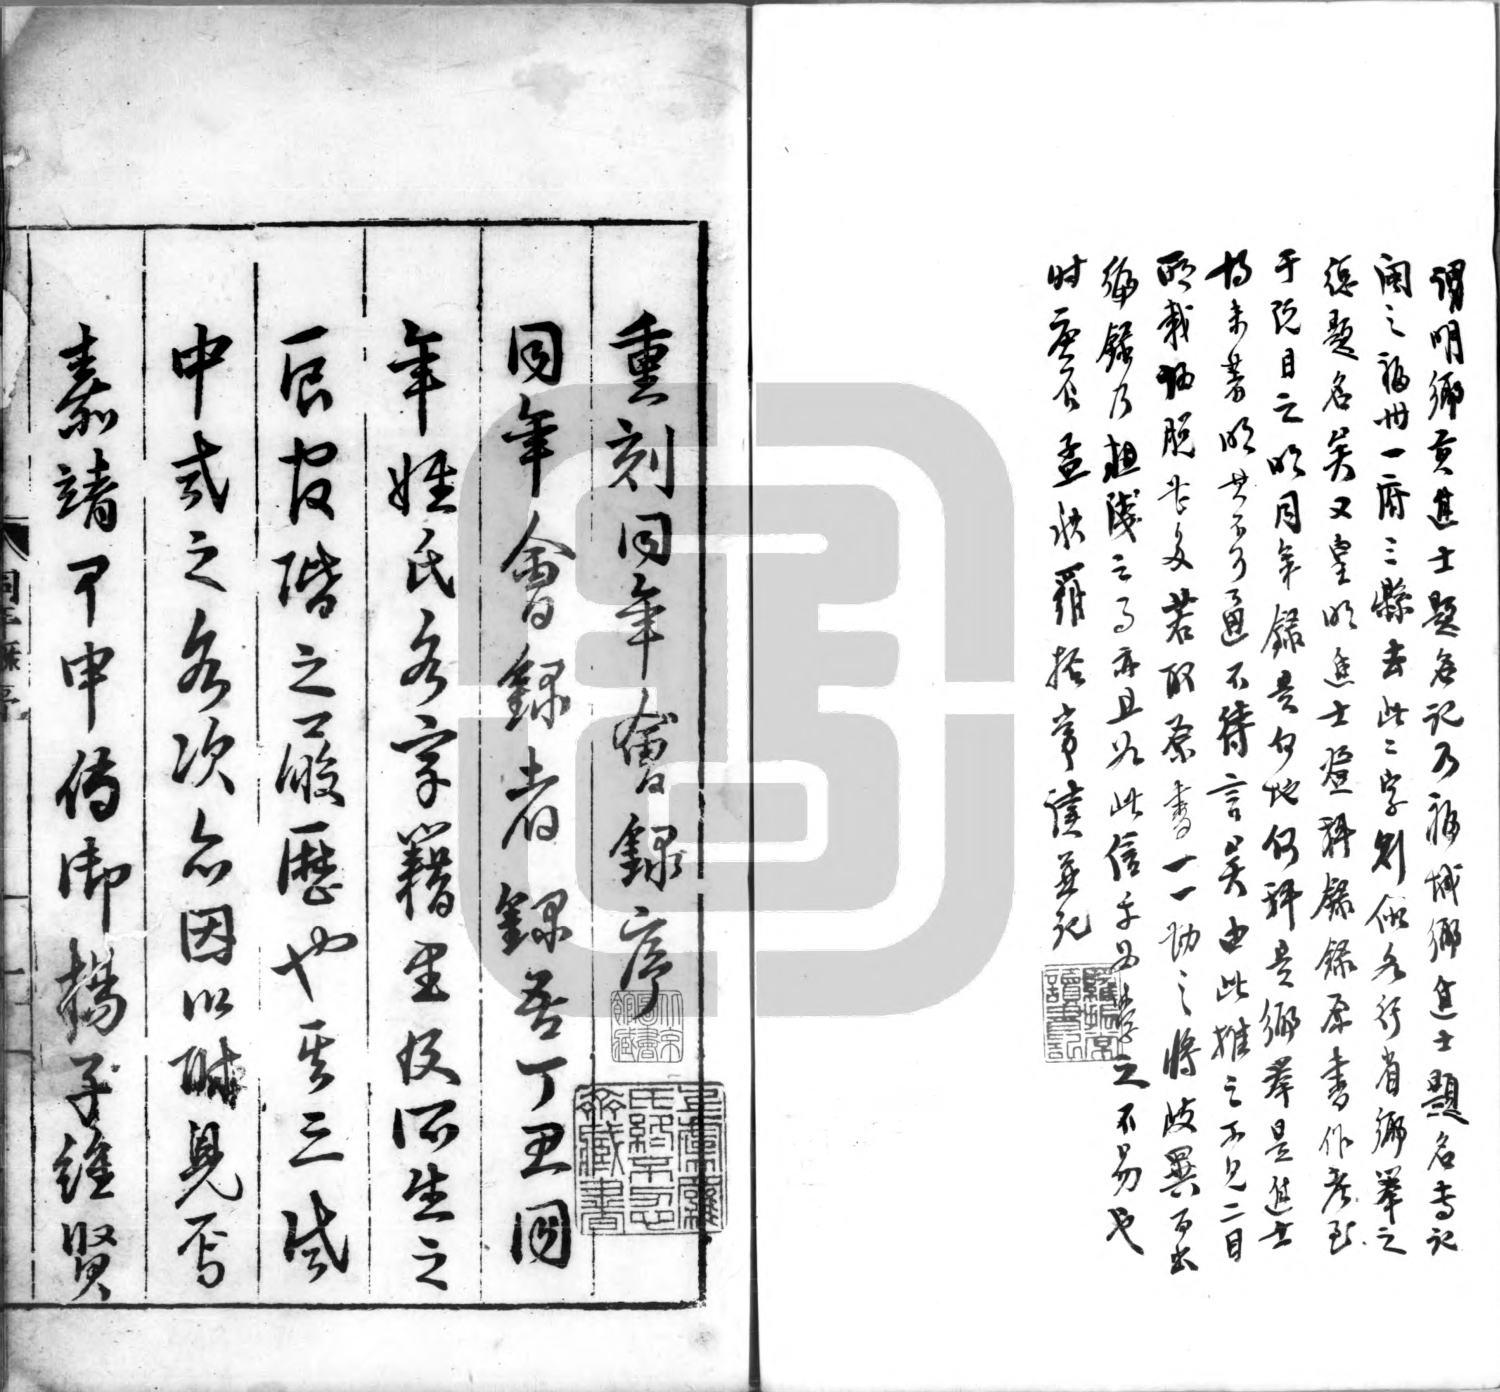 謂明鄉貢進士題名記乃福城鄉進士題名書記
閩之福州一府三縣去此二字則似各行省鄉舉之
總題名矣又皇明進士登科錄錄原書作考至
于院目之明同年錄是何地何科是鄉舉是進士
均未著明其不可通不待言矣由此推之不見二目
所載訛脫甚多若取原書一一勘之將歧異百出
編錄乃粗淺之事亦且如此信乎目學之不易也
時庚辰孟秋羅振常讀並記
羅振常讀書記
重刻同年會錄序
同年會錄者錄吾丁丑同
年姓氏名字籍里及所生之
辰官階之履歷也其三代
中式之名次亦因以附見焉
嘉靖甲申侍御楊子維賢